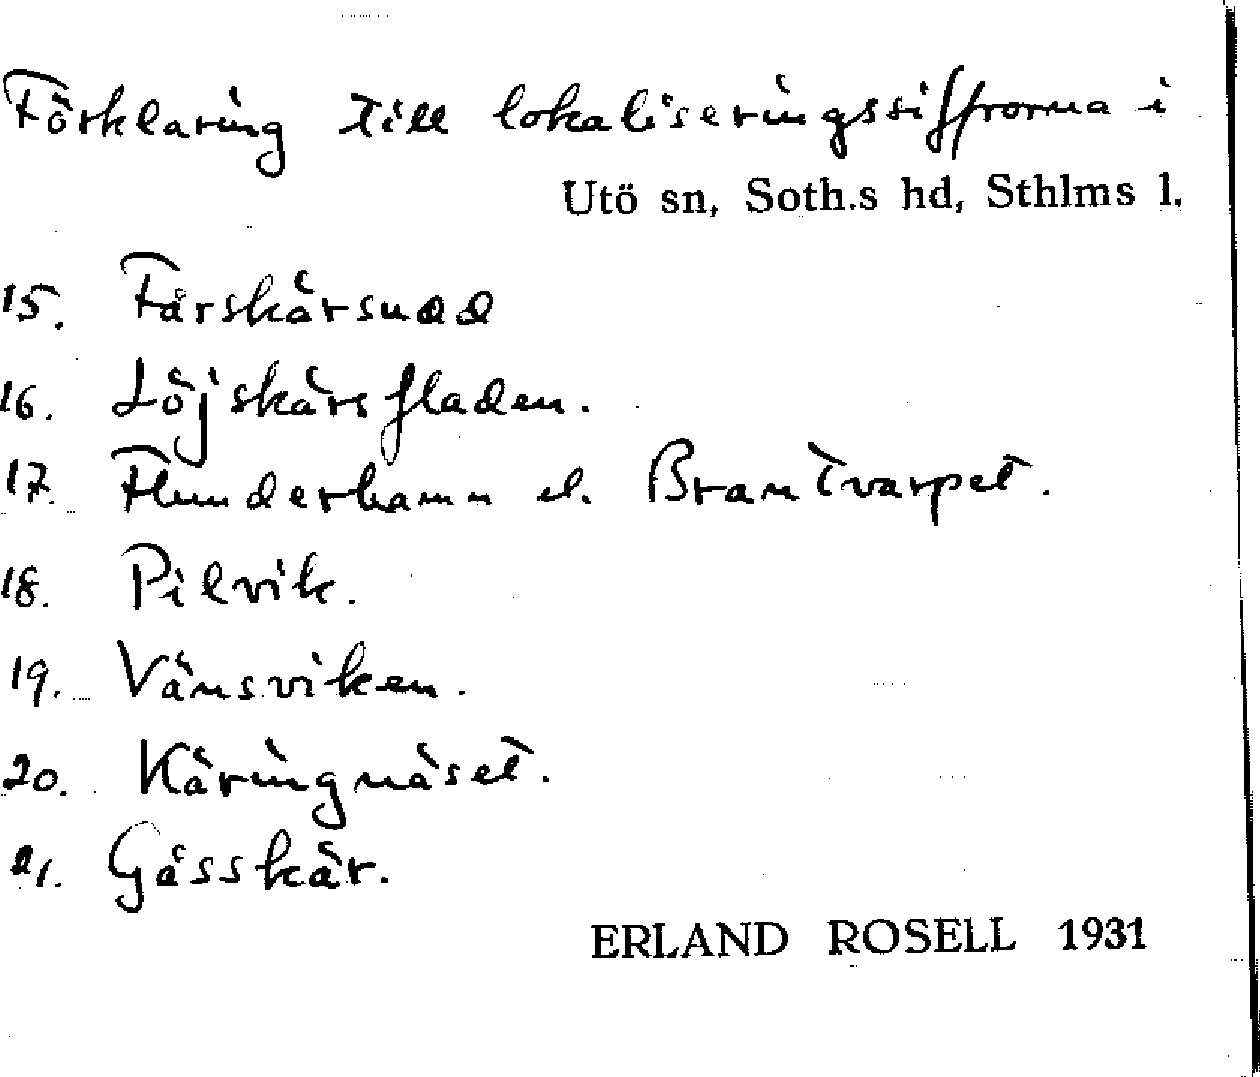 Förklaring till lokaliseringssiffrorna i
Utö sn, Soth.s hd, Sthlms l.
15. Fårskärsudd
16. Löjskärsfladen.
17. Flunderhamn el. Brantvarpet.
18. Pilvik.
19. Vänsviken.
20. Käringnäset.
21. Gåsskär.
ERLAND ROSELL 1931